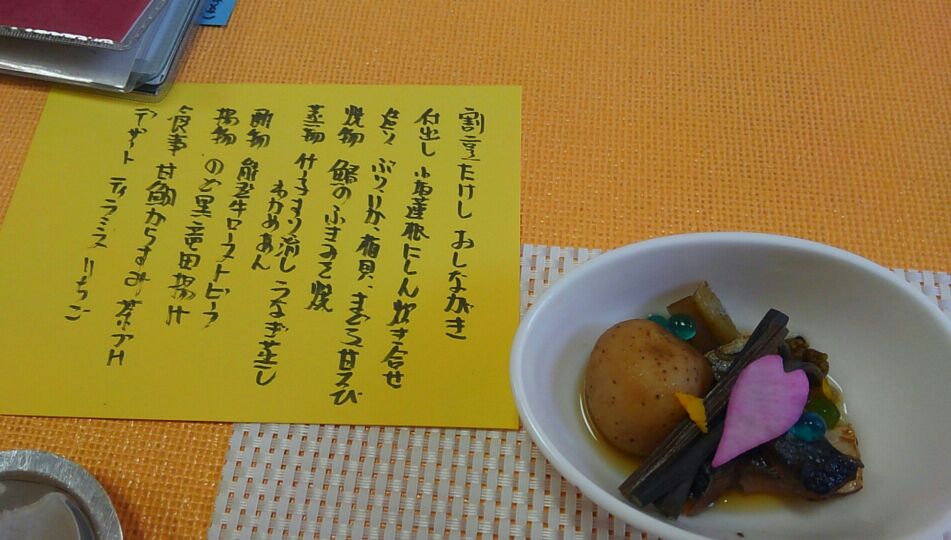 割烹たけし おしながき
付出し 小海連根にしん炊き合せ
造り ぶり、いか、梅貝、まぐろ 甘えび
焼物 鰆のふきみそ焼
蒸物 竹の子すり流し うなぎ蒸し
わかめあん
酢物 能登牛ローストビーフ
揚物 のど黒竜田揚げ
食事 甘鯛からすみ茶づけ
デザート ティラミス いちご